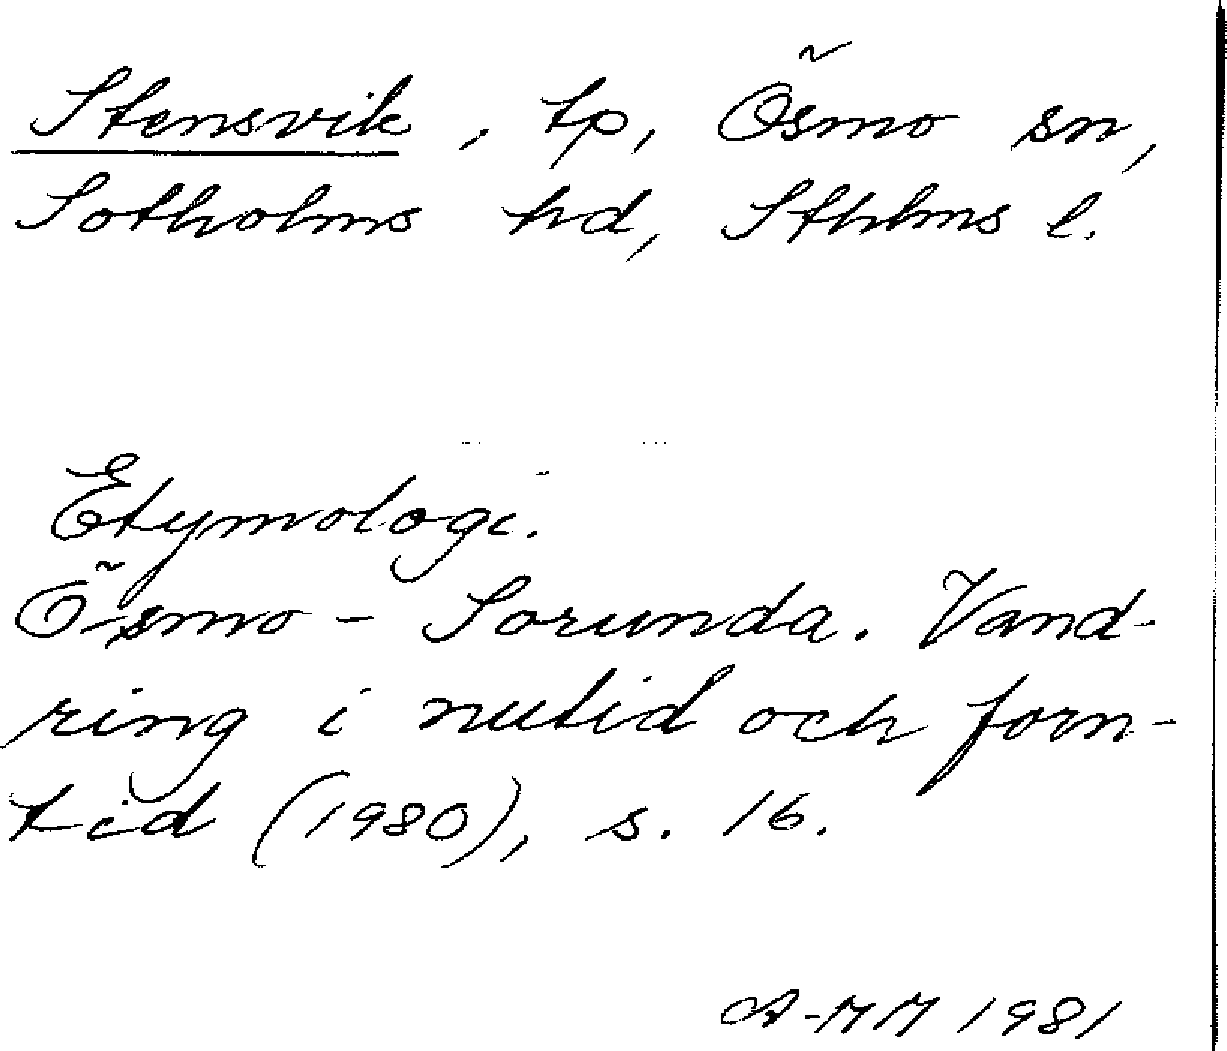 Stensvik, tp, Ösmo sn,
Sotholms hd, Sthlms l.
Etymologi.
Ösmo - Sorunda. Vand-
ring i nutid och forn-
tid (1980), s. 16.
A-MM 1981